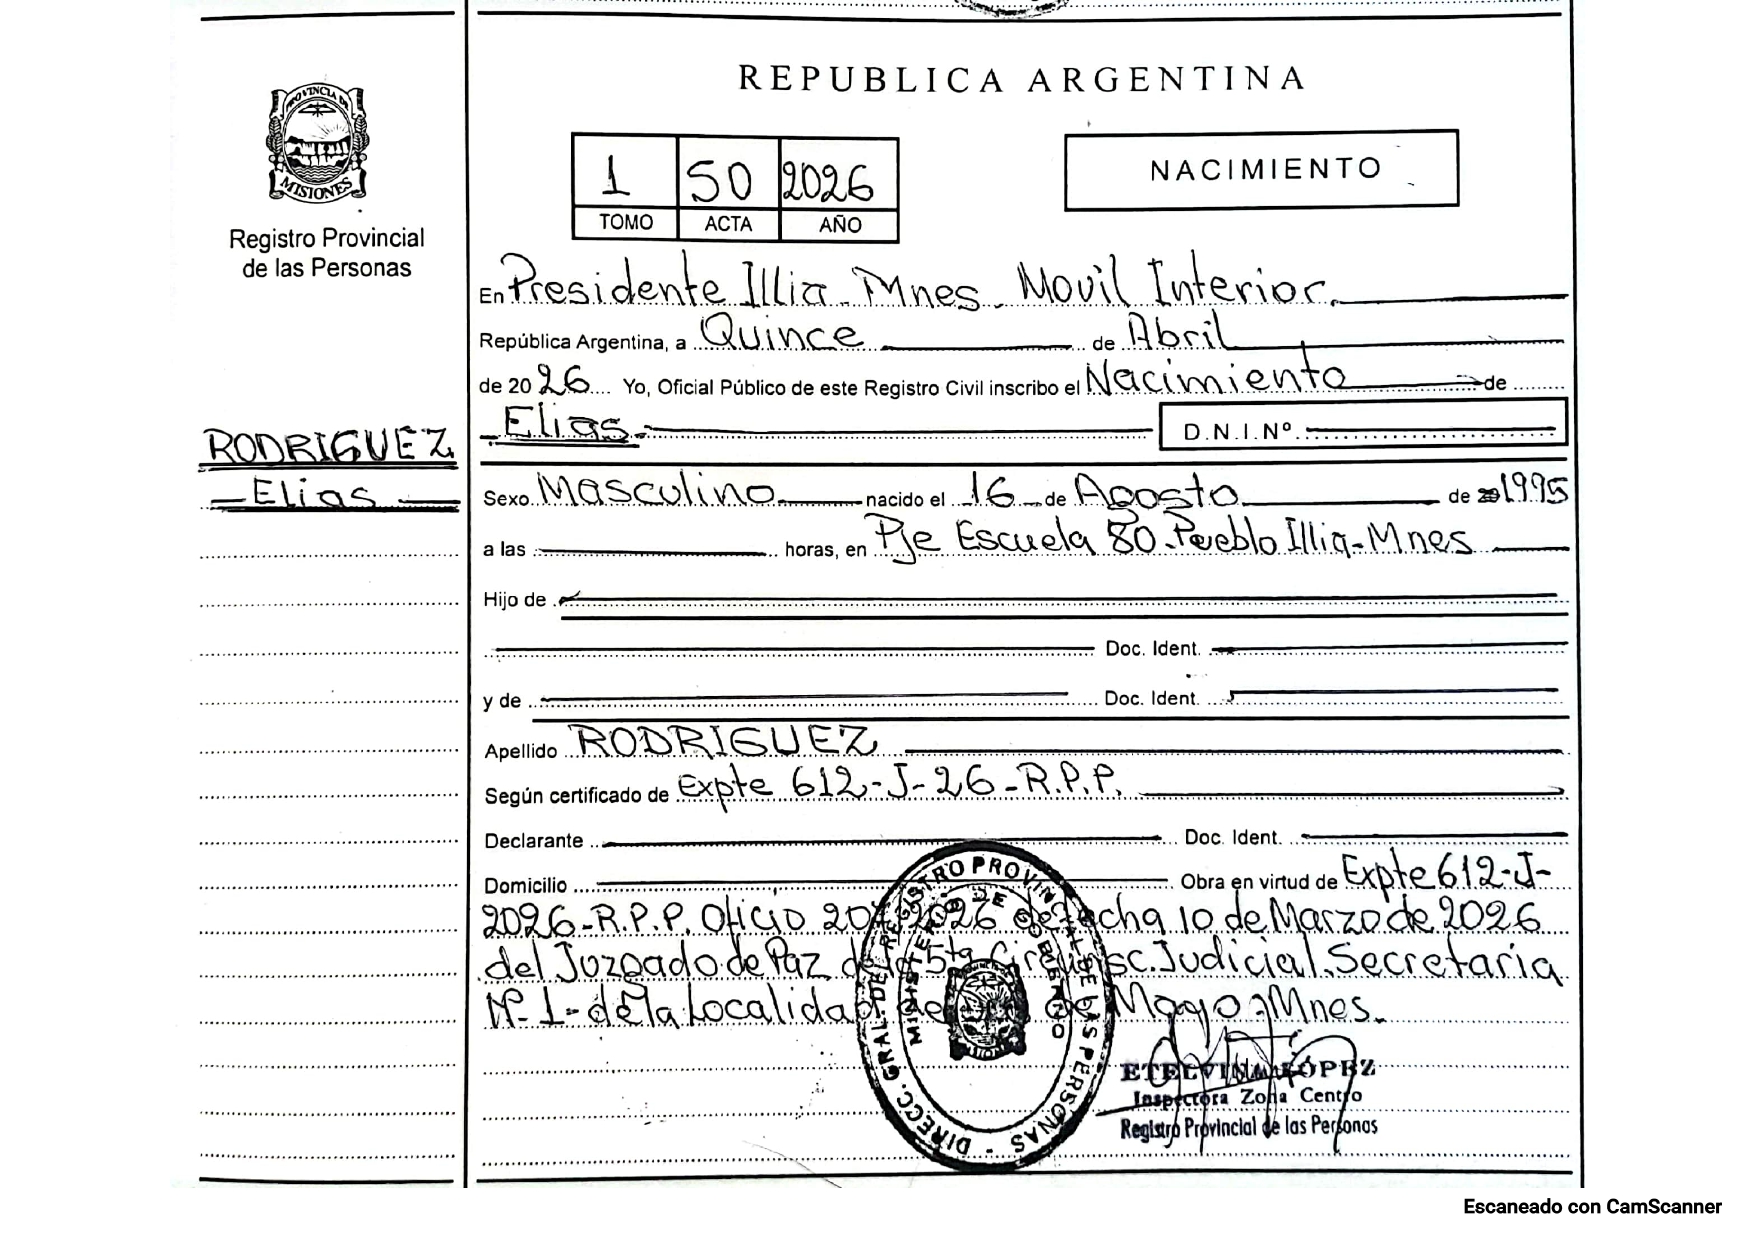 REPUBLICA ARGENTINA
PROVINCIA DE
MISIONES
Registro Provincial
de las Personas
1 50 2026
TOMO ACTA AÑO
NACIMIENTO
En Presidente Illia - Mnes - Movil Interior.
República Argentina, a Quince de Abril
de 20 26 Yo, Oficial Público de este Registro Civil inscribo el Nacimiento de
Elias.
D.N.I.Nº
RODRIGUEZ
Elias
Sexo Masculino nacido el 16 de Agosto de 1995
a las horas, en Pje Escuela 80. Pueblo Illia - Mnes
Hijo de
Doc. Ident.
y de Doc. Ident.
Apellido RODRIGUEZ
Según certificado de Expte 612-J-26-R.P.P.
Declarante Doc. Ident.
Domicilio Obra en virtud de Expte 612-J-
2026-R.P.P. Oficio 2026 de fecha 10 de Marzo de 2026
del Juzgado de Paz de la 5ta Judicial. Secretaria
Nº 1- de la Localidad de Mayo - Mnes.
DIRECC. GRAL. DEL REGISTRO PROVINCIAL DE LAS PERSONAS
MINISTERIO DE GOBIERNO
ETELVINA LÓPEZ
Inspectora Zona Centro
Registro Provincial de las Personas
Escaneado con CamScanner